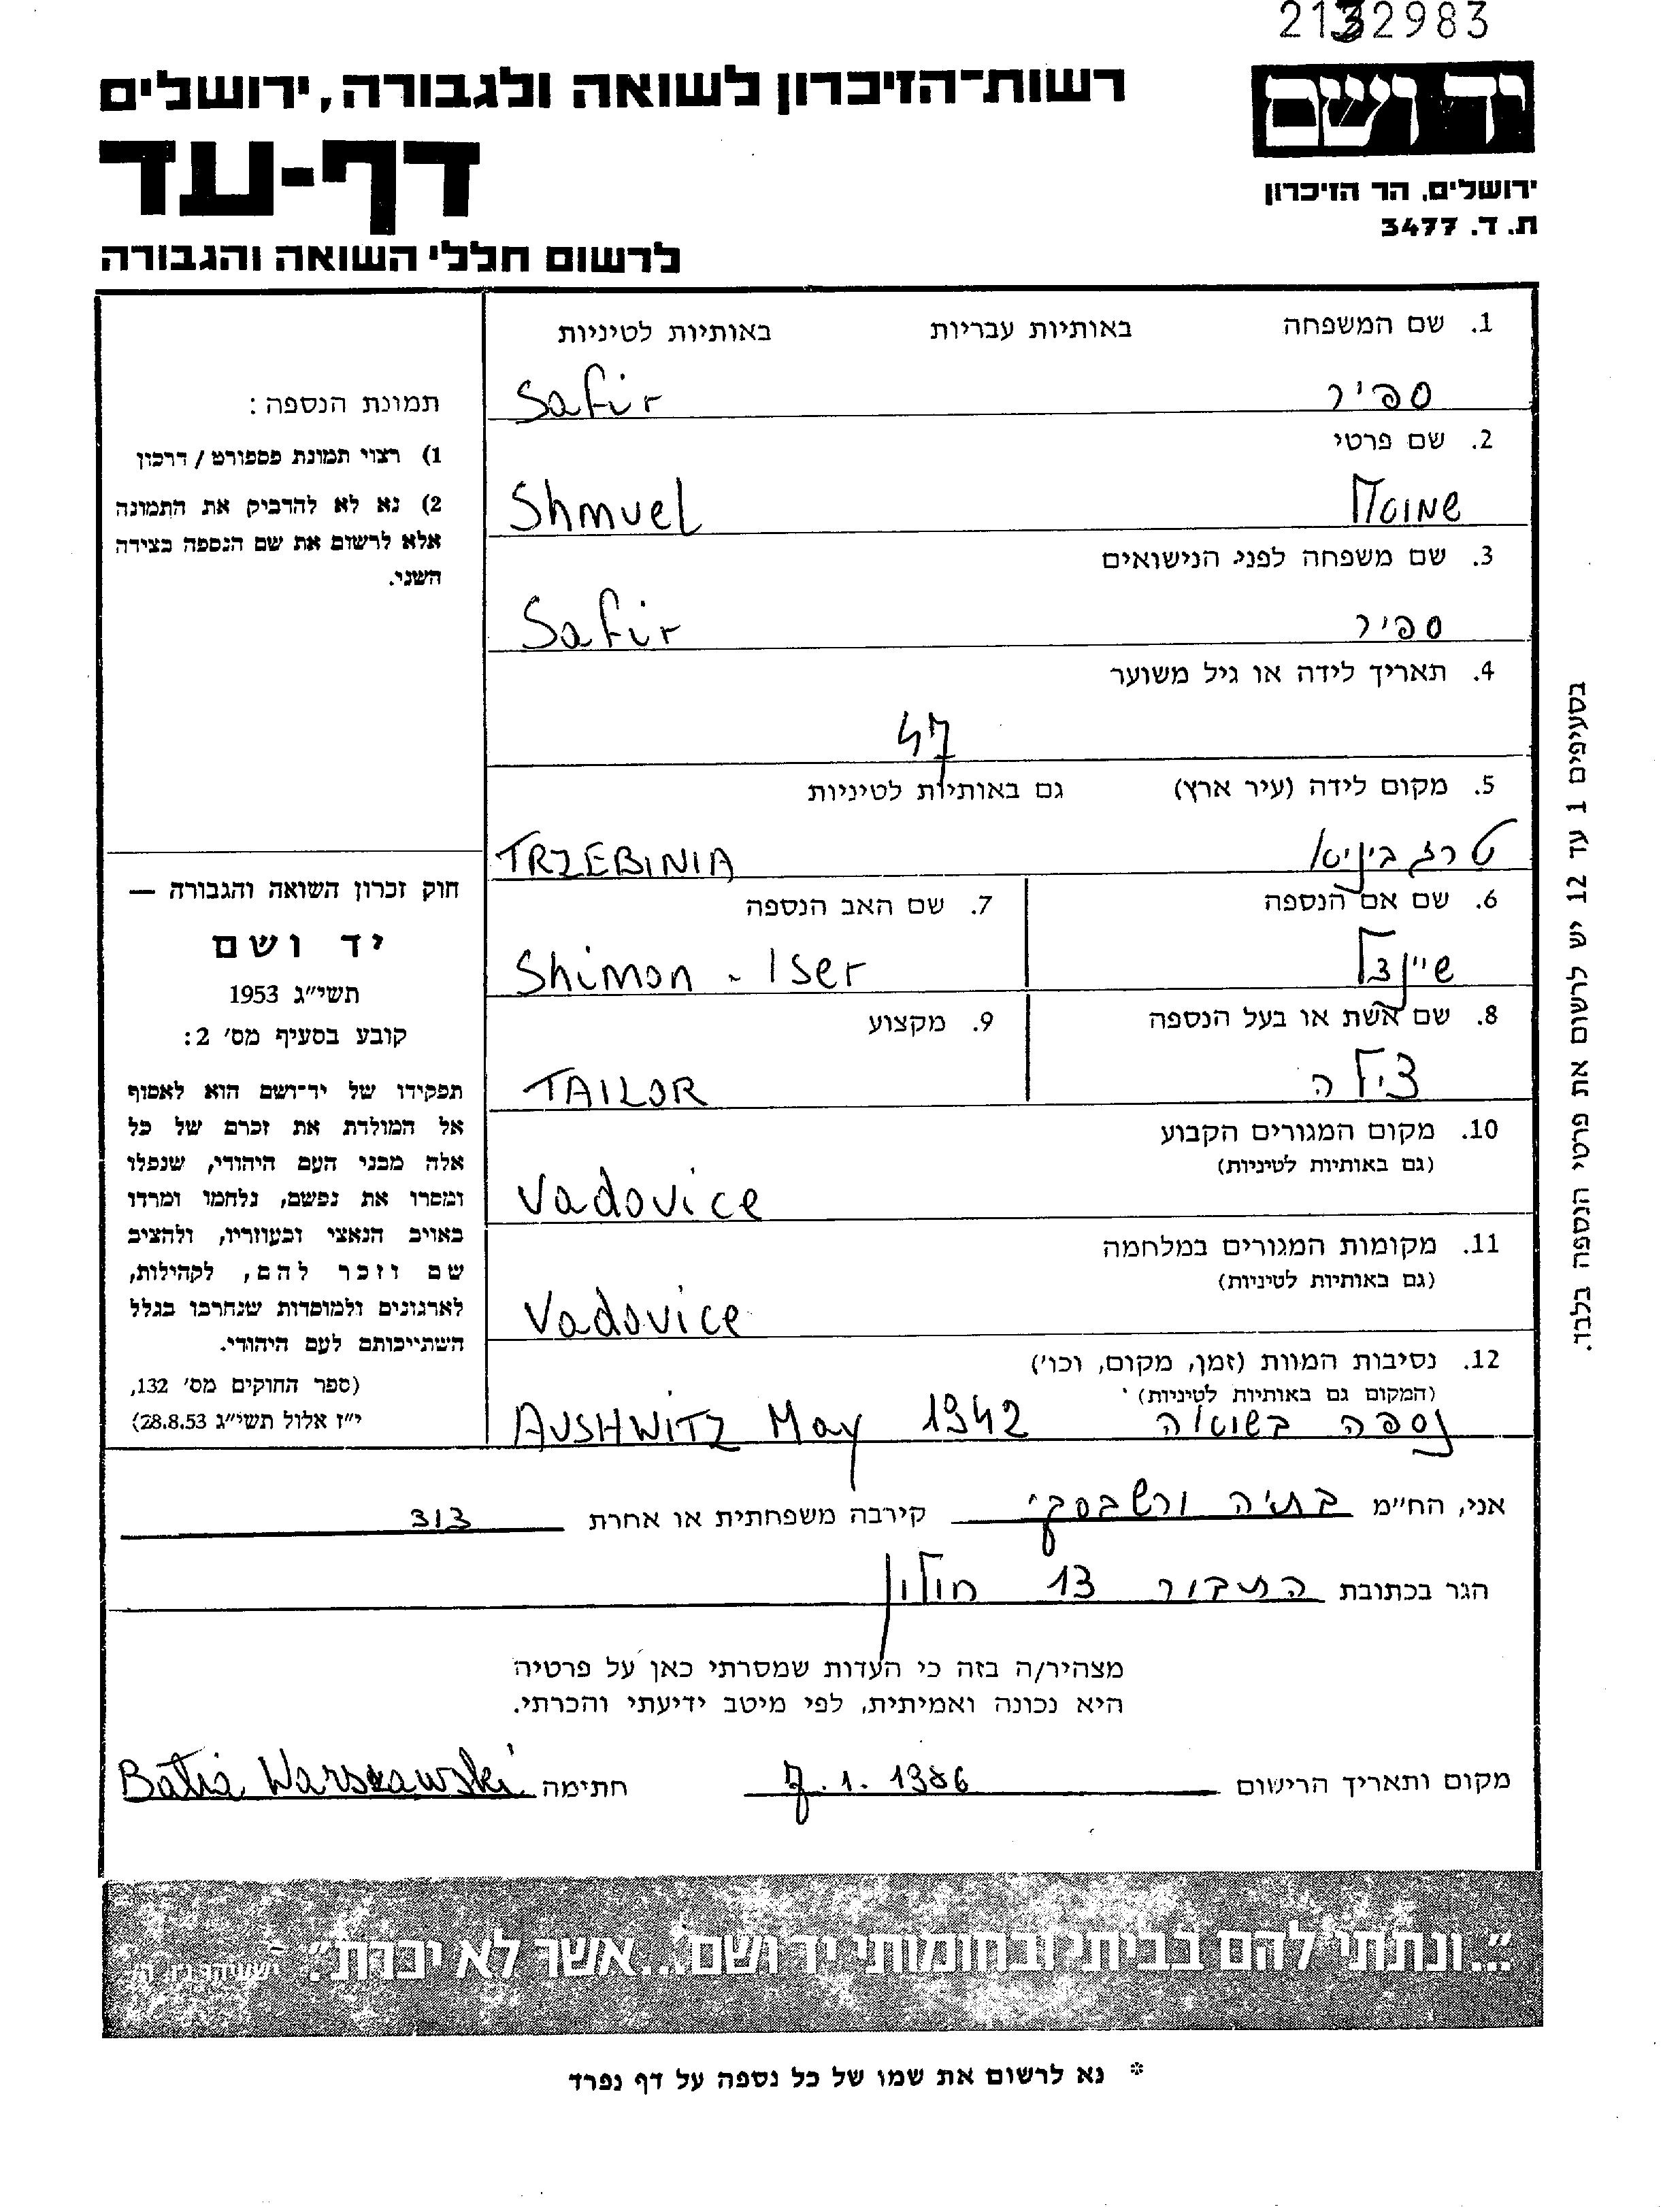 2132983
יד ושם
ירושלים. הר הזיכרון
ת. ד. 3477
רשות־הזיכרון לשואה ולגבורה, ירושלים
דף-עד
לרשום חללי השואה והגבורה
תמונת הנספה:
1) רצוי תמונת פספורט / דרכון
2) נא לא להדביק את התמונה
אלא לרשום את שם הנספה בצידה
השני.
חוק זכרון השואה והגבורה —
יד ושם
תשי״ג 1953
קובע בסעיף מס׳ 2:
תפקידו של יד־ושם הוא לאסוף
אל המולדת את זכרם של כל
אלה מבני העם היהודי, שנפלו
ומסרו את נפשם, נלחמו ומרדו
באויב הנאצי ובעוזריו, ולהציב
שם וזכר להם, לקהילות,
לארגונים ולמוסדות שנחרבו בגלל
השתייכותם לעם היהודי.
(ספר החוקים מס׳ 132,
י״ז אלול תשי״ג 28.8.53)
1. שם המשפחה באותיות עבריות באותיות לטיניות
ספיר Safir
2. שם פרטי
שמואל Shmuel
3. שם משפחה לפני הנישואים
ספיר Safir
4. תאריך לידה או גיל משוער
47
5. מקום לידה (עיר ארץ) גם באותיות לטיניות
טרזביניא TRZEBINIA
6. שם אם הנספה 7. שם האב הנספה
שיינדל Shimon - Iser
8. שם אשת או בעל הנספה 9. מקצוע
צילה TAILOR
10. מקום המגורים הקבוע
(גם באותיות לטיניות)
Vadovice
11. מקומות המגורים במלחמה
(גם באותיות לטיניות)
Vadovice
12. נסיבות המוות (זמן, מקום, וכו׳)
(המקום גם באותיות לטיניות)
נספה בשואה AUSHWITZ May 1942
אני, הח״מ בתיה ורשבסקי קירבה משפחתית או אחרת דוד
הגר בכתובת התבור 13 חולון
מצהיר/ה בזה כי העדות שמסרתי כאן על פרטיה
היא נכונה ואמיתית, לפי מיטב ידיעתי והכרתי.
מקום ותאריך הרישום 7.1.1986 חתימה Batia Warszawski
״...ונתתי להם בביתי ובחומותי יד ושם...אשר לא יכרת״. ישעיהו נ״ו, ה׳
* נא לרשום את שמו של כל נספה על דף נפרד
בסעיפים 1 עד 12 יש לרשום את פרטי הנספה בלבד.